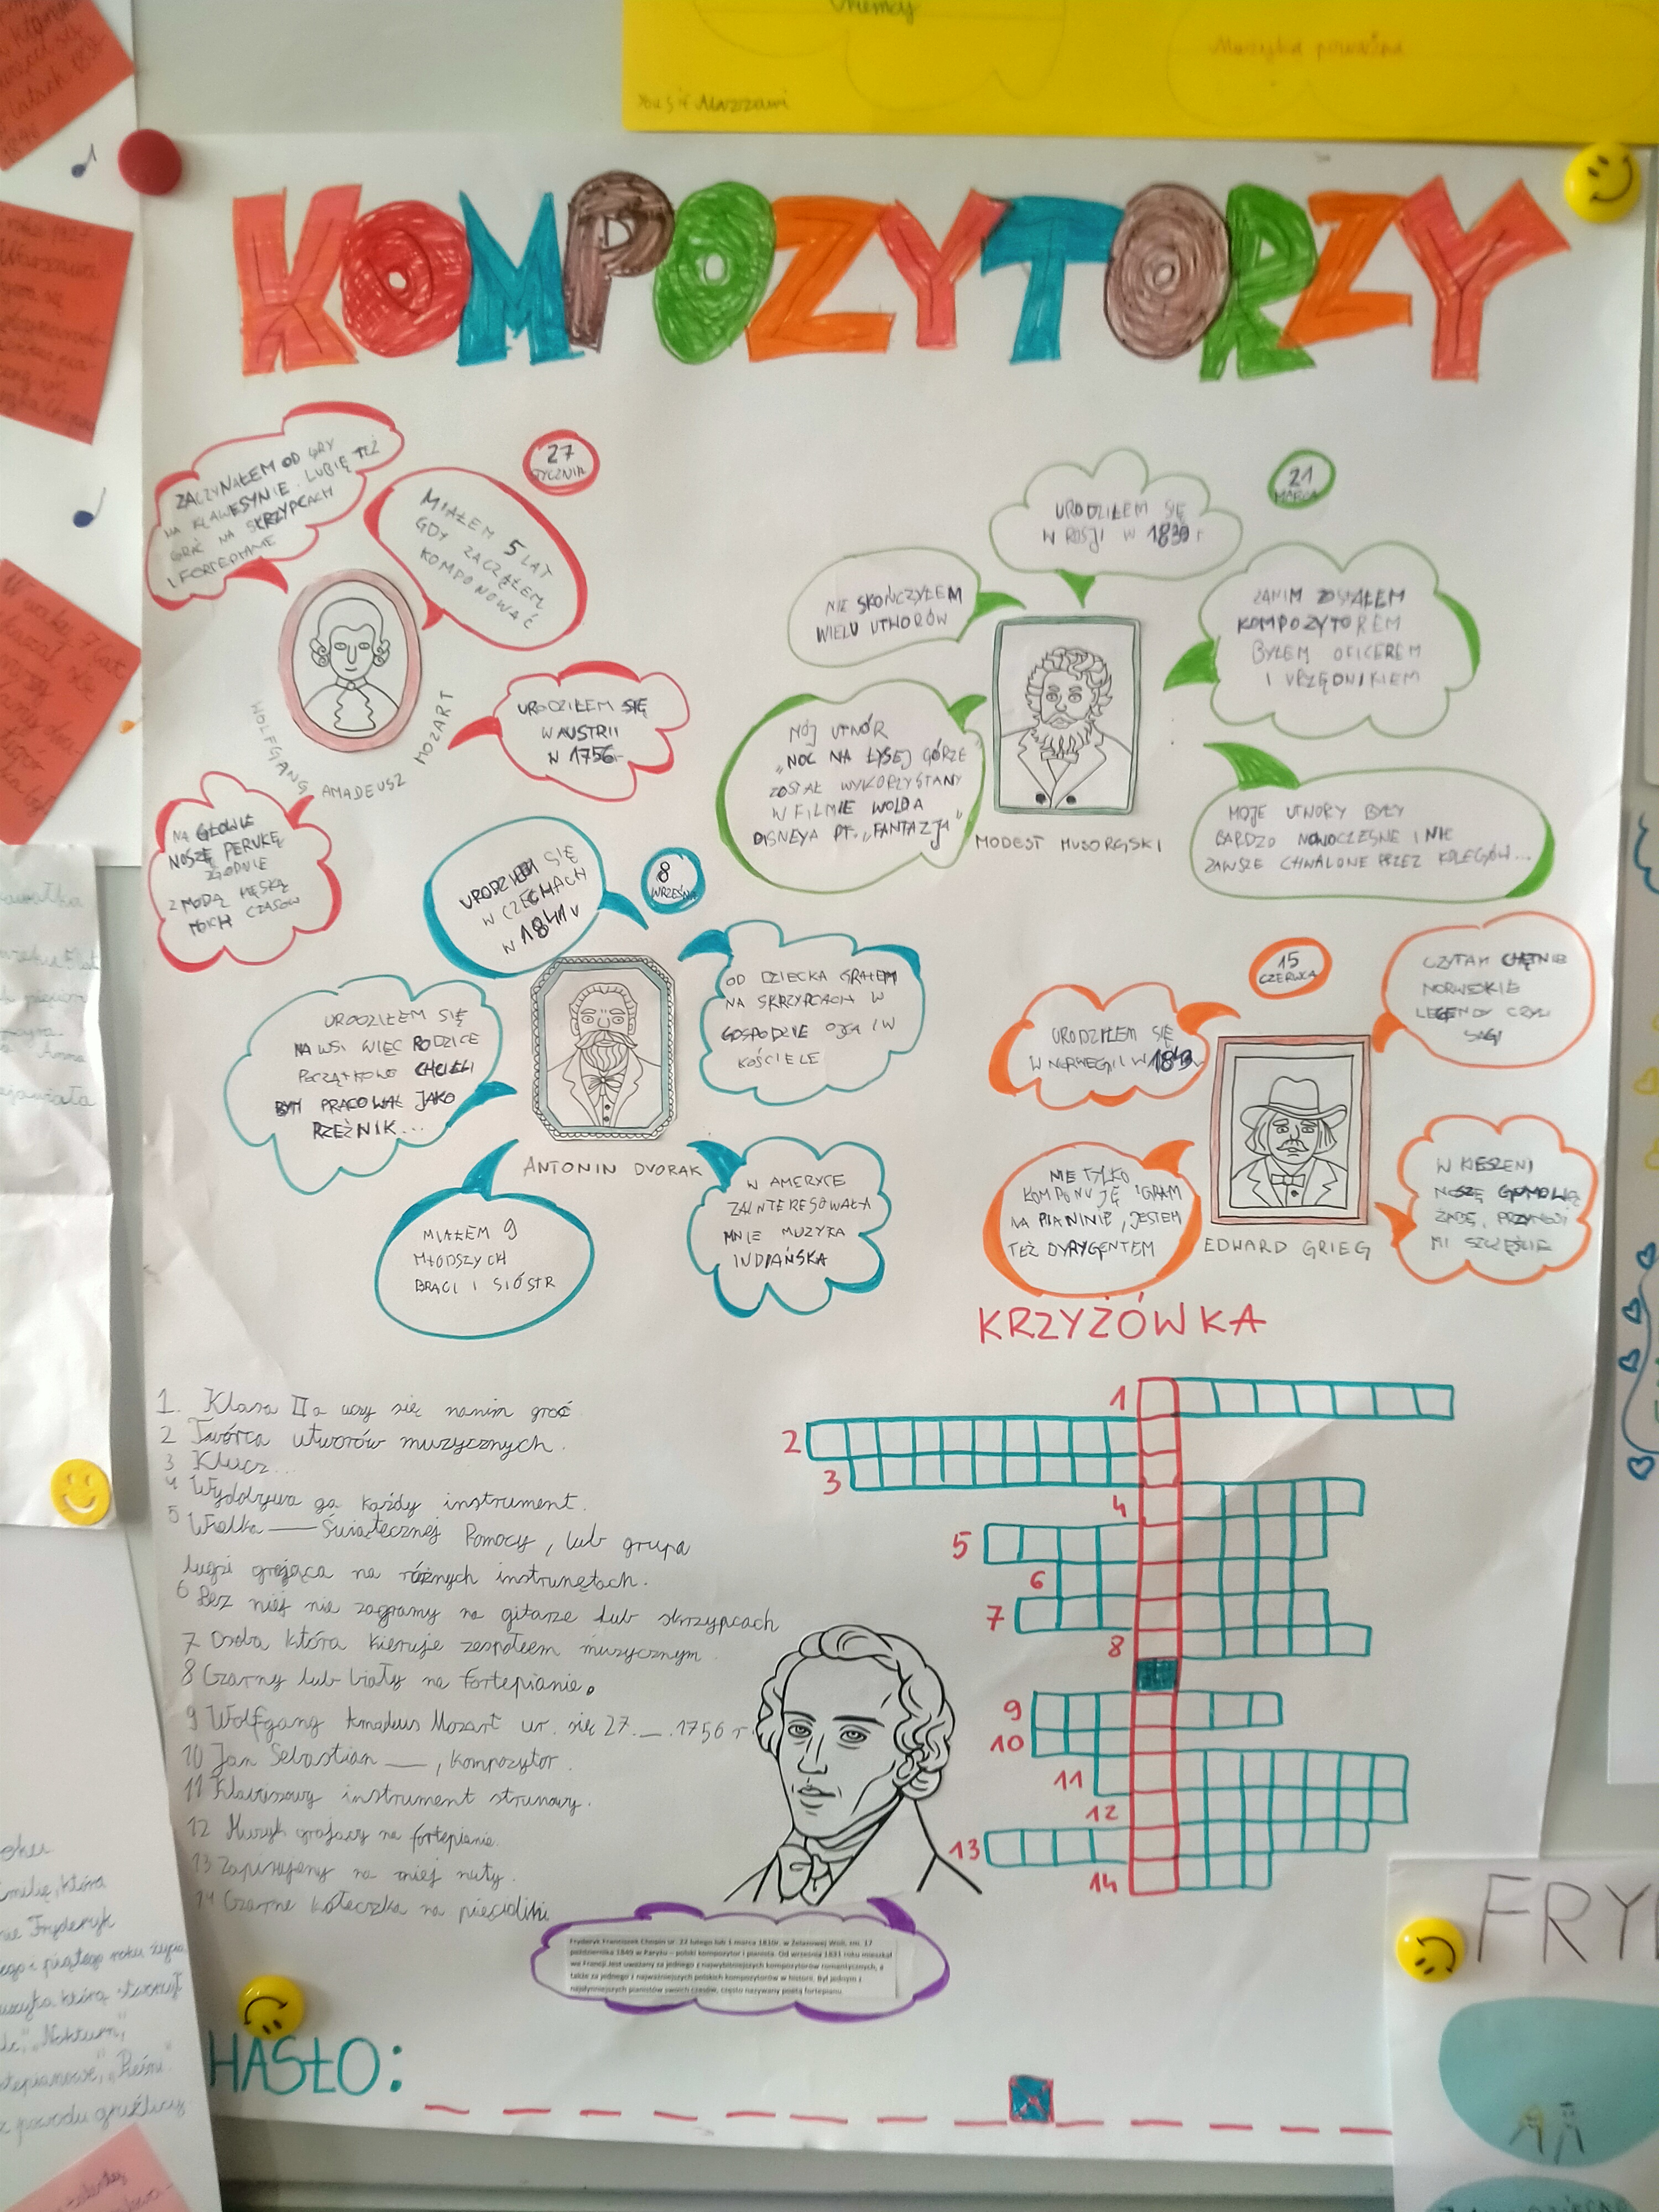 Chemcy
Muzyka poważna
KOMPOZYTORZY
ZACZYNAŁEM OD GRY
NA KLAWESYNIE. LUBIĘ TEŻ
GRAĆ NA SKRZYPCACH
I FORTEPIANIE
MIAŁEM 5 LAT
GDY ZACZĄŁEM
KOMPONOWAĆ
27
STYCZNIA
URODZIŁEM SIĘ
W AUSTRII
W 1756r
WOLFGANG AMADEUSZ MOZART
NA GŁOWIE
NOSZĘ PERUKĘ
ZGODNIE
Z MODĄ MĘSKĄ
MOICH CZASÓW
21
MARCA
URODZIŁEM SIĘ
W ROSJI W 1839 r
NIE SKOŃCZYŁEM
WIELU UTWORÓW
ZANIM ZOSTAŁEM
KOMPOZYTOREM
BYŁEM OFICEREM
I URZĘDNIKIEM
MÓJ UTWÓR
„NOC NA ŁYSEJ GÓRZE
ZOSTAŁ WYKORZYSTANY
W FILMIE WOLDA
DISNEYA PT. „FANTAZJA"
MODEST MUSORGSKI
MOJE UTWORY BYŁY
BARDZO NOWOCZESNE I NIE
ZAWSZE CHWALONE PRZEZ KOLEGÓW...
URODZIŁEM SIĘ
W CZECHACH
W 1841 r
8
WRZEŚNIA
URODZIŁEM SIĘ
NA WSI WIĘC RODZICE
POCZĄTKOWO CHCIELI
BYM PRACOWAŁ JAKO
RZEŹNIK...
OD DZIECKA GRAŁEM
NA SKRZYPCACH W
GOSPODZIE OJCA I W
KOŚCIELE
ANTONIN DVORAK
MIAŁEM 9
MŁODSZYCH
BRACI I SIÓSTR
W AMERYCE
ZAINTERESOWAŁA
MNIE MUZYKA
INDIAŃSKA
15
CZERWCA
URODZIŁEM SIĘ
W NORWEGII W 1843
CZYTAM CHĘTNIE
NORWESKIE
LEGENDY CZYLI
SAGI
NIE TYLKO
KOMPONUJĘ I GRAM
NA PIANINIE, JESTEM
TEŻ DYRYGENTEM
EDWARD GRIEG
W KIESZENI
NOSZĘ GUMOWĄ
ŻABĘ, PRZYNOSI
MI SZCZĘŚCIE
KRZYŻÓWKA
1. Klasa II a uczy się na nim grać
2 Twórca utworów muzycznych.
3 Klucz...
4 Wydobywa go każdy instrument.
5 Wielka — Świątecznej Pomocy, lub grupa
ludzi grająca na różnych instrunętach.
6 Bez niej nie zagramy na gitarze lub skrzypcach
7 Osoba która kieruje zespołem muzycznym.
8 Czarny lub biały na fortepianie.
9 Wolfgang Amadeus Mozart ur. się 27. __ .1756 r.
10 Jan Sebastian —, kompozytor.
11 Klawiszowy instrument strunowy.
12 Muzyk grający na fortepianie.
13 Zapisujemy na niej nuty.
14 Czarne kółeczka na pięciolinii
1
2
3
4
5
6
7
8
9
10
11
12
13
14
Fryderyk Franciszek Chopin ur. 22 lutego lub 1 marca 1810r. w Żelazowej Woli, zm. 17
października 1849 w Paryżu – polski kompozytor i pianista. Od września 1831 roku mieszkał
we Francji. Jest uważany za jednego z najwybitniejszych kompozytorów romantycznych, a
także za jednego z najważniejszych polskich kompozytorów w historii. Był jednym z
najsłynniejszych pianistów swoich czasów, często nazywany poetą fortepianu.
HASŁO:
FRY